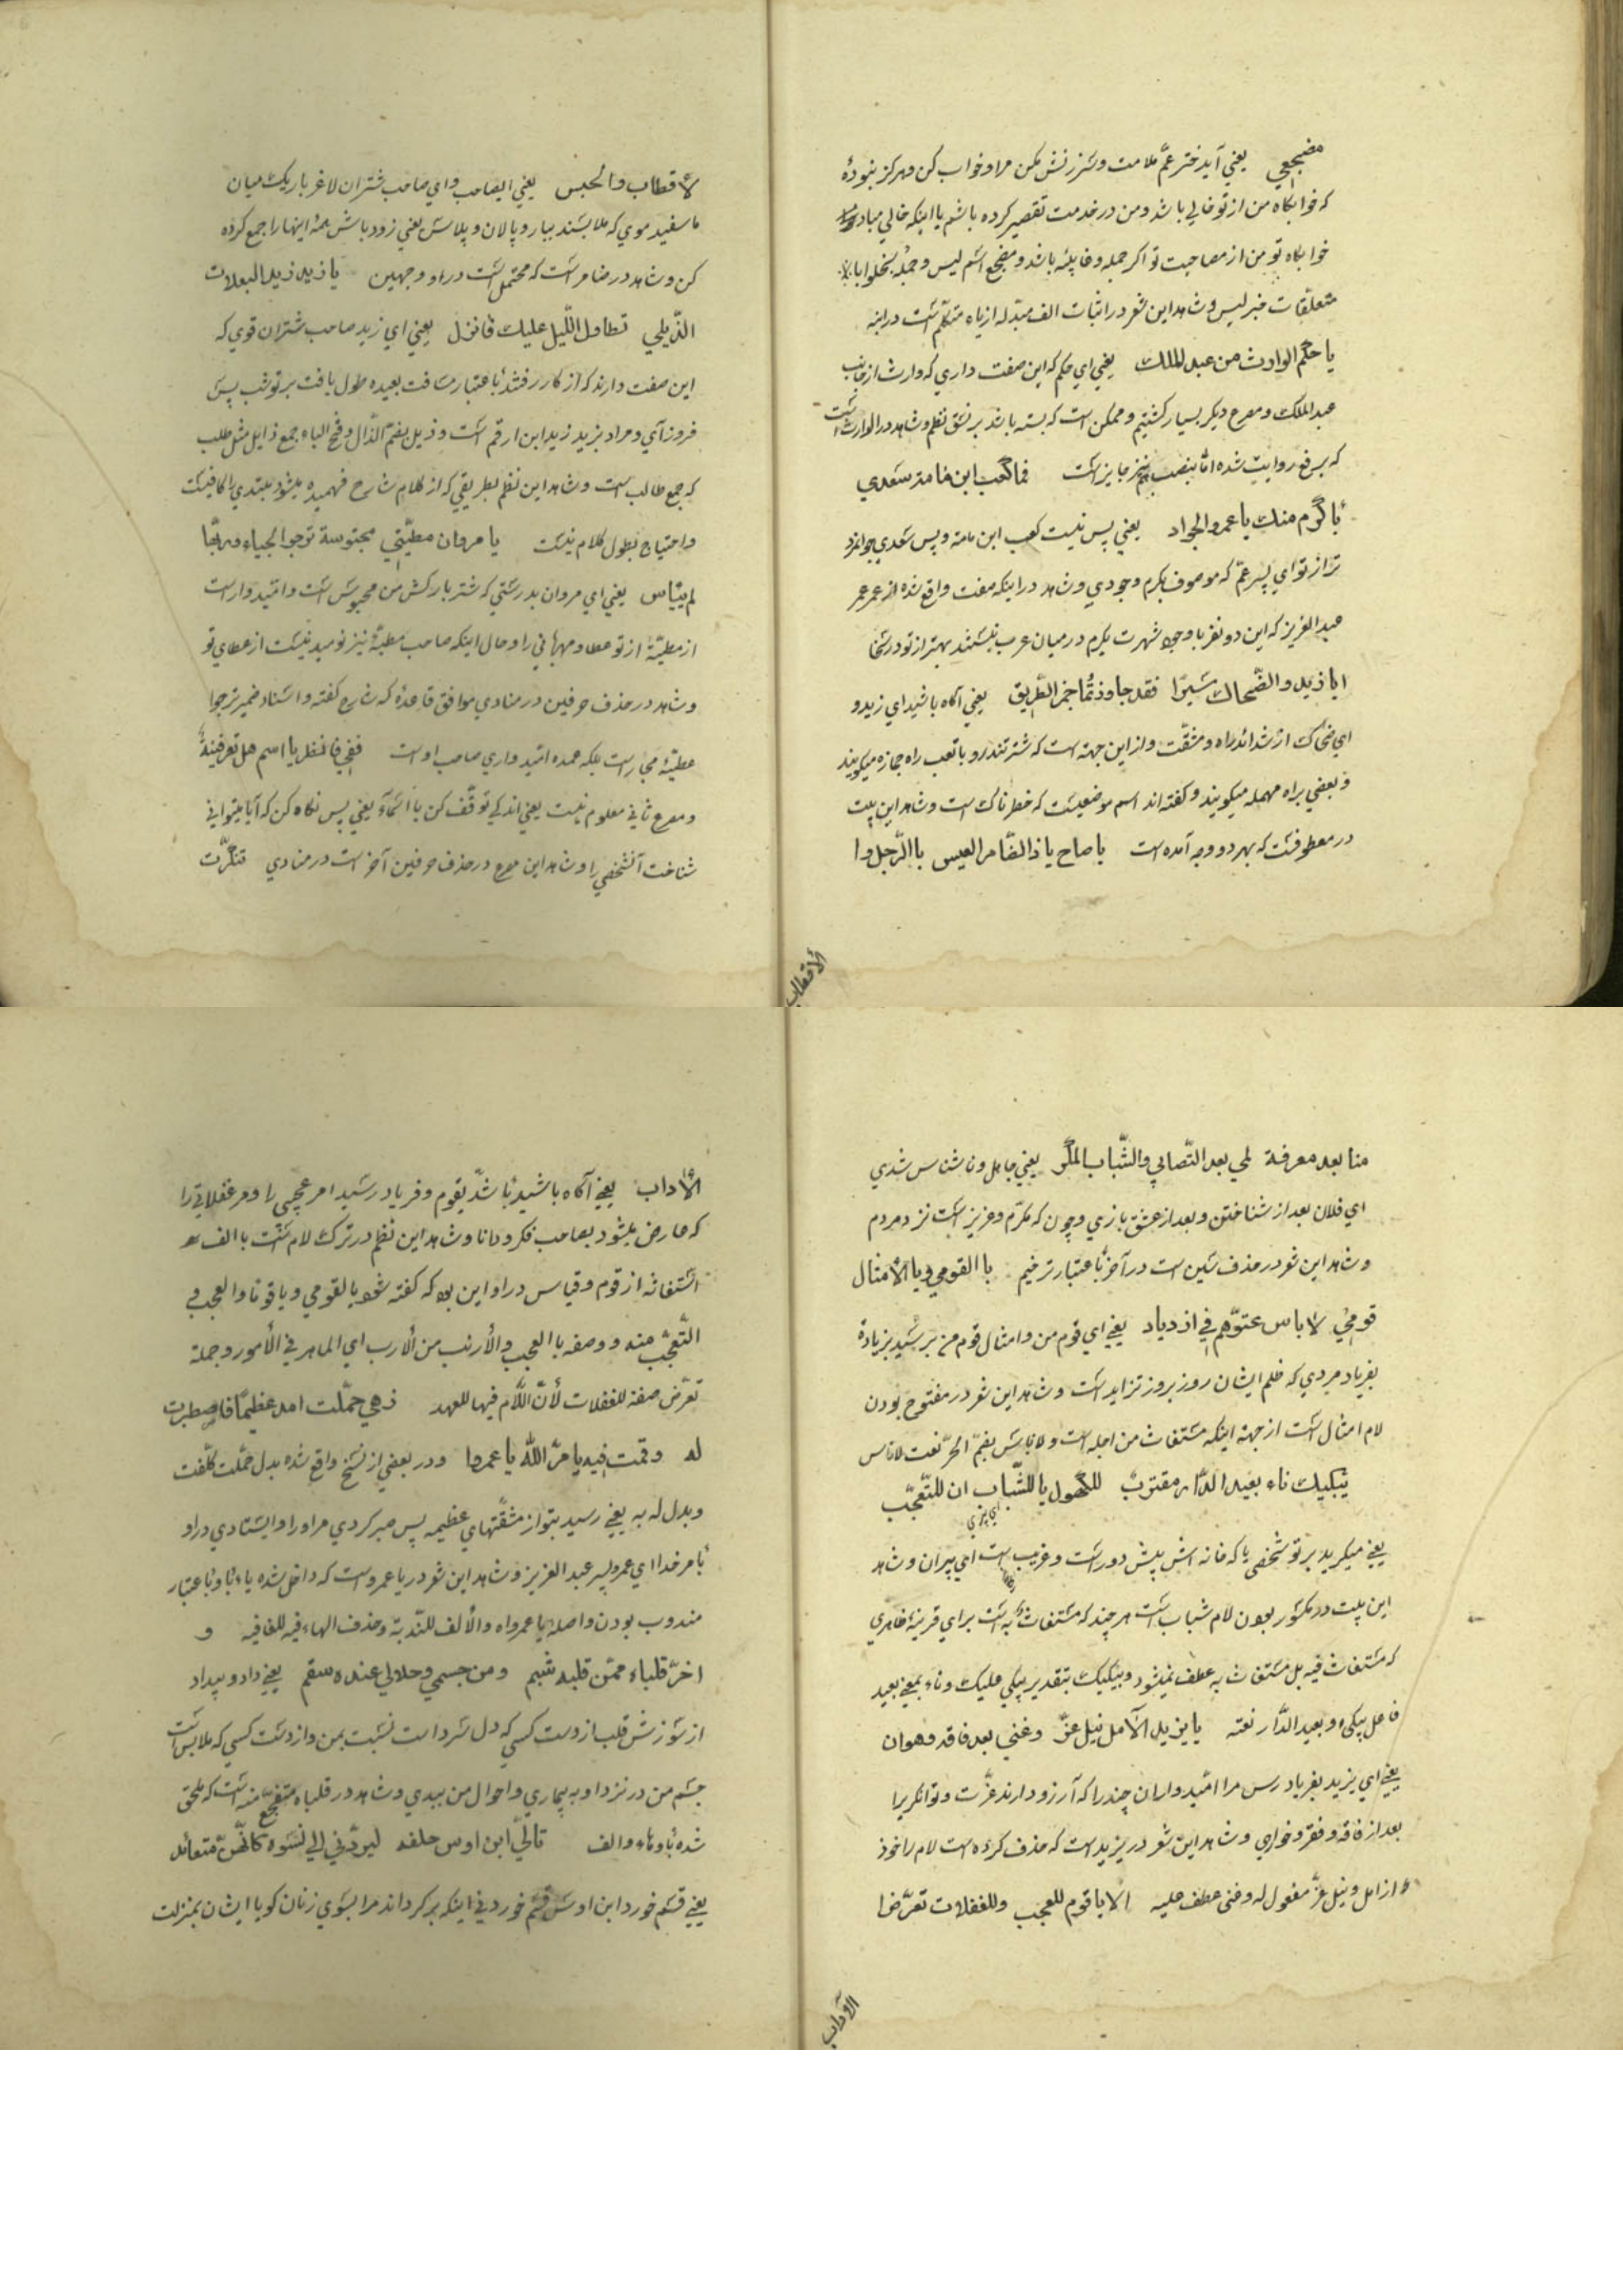 مضجعي یعني آیدختر عمّ ملامت وسرزنش مکن مرا وخواب کن وهرکز نبودهٔ
که خوابکاه من از تو خالي باشد ومن در خدمت تقصیر کرده باشم یا اینکه خالي مباد
خوابکاه تو من از مصاحبت تو اکر جمله دعاییّه باشد ومضجع اسم لیس وجمله یخلوا با
متعلّقات خبر لیس وشاهد این شعر در اثبات الف مبدّله از یاء متکلّم است در ابنه
یا حکم الوارث من عبد الملك یعني اي حکم که این صفت داري که وارث از جانب
عبد الملك ومصرع دیکر بسیار کشتیم وممکن است که بسته باشد بر نسق نظم وشاهد در الوارث است
که برفع روایت شده امّا بنصب هم نیز جایز است فما کعب ابن مامة وسعدي
بأکرم منك یا عمرو الجواد یعني پس نیست کعب ابن مامة وپسر سعدي جوانمرد
تر از تو اي پسر عمّ که موصوف بکرم وجودي وشاهد در اینکه صفت واقع شده از عمر عمر
عبد العزیز که این دو نفر با وجود شهرت بکرم در میان عرب نیستند بهتر از تو در سخا
ایا زید والضّحاك سیرا فقد جاوزتما خمر الطّریق یعني آکاه باشید اي زید و
اي ضحّاك از شدائد راه ومشقّت واز این جهة است که شتر تند رو با تعب راه جمازه میکویند
وبعضي براه مهمله میکویند وکفته اند اسم موضعیست که خطرناکست وشاهد این بیت
در معطوفست که بهر دو وجه آمده است یا صاح یا ذا الضّامر العیس یا الرّجل وا
الأقطاب
لأقطاب والحبس یعني ایصاحب واي صاحب شتران لاغر باریك میان
ما سفید موي که ملابسند ببار وپالان وپلاس یعني زود باش همهٔ اینها را جمع کرده
کن وشاهد در ضامر است که محتمل است در او وجهین یا زید زید الیعملات
الذّبلي تطاول اللّیل علیك فانزل یعني اي زید صاحب شتران قوي که
این صفت دارند که از کار رفتند باعتبار مسافت بعیده طول یافت بر تو شب پس
فروز آي ومراد بزید زید ابن ارقم است وذبل بضمّ الذّال وفتح الباء جمع ذابل مثل طلب
که جمع طالب است وشاهد این نظم بطریقي که از کلام شارح فهمیده میشود مبتدي را کافیست
واحتیاج بطول کلام نیست یا مروان مطیّتي محبوسة ترجوا الحباء وربّها
لم ییأس یعني اي مروان بدرستي که شتر بارکش من محبوس است وامّیدوار است
از مطیّة از تو عطا ومهرباني را وحال اینکه صاحب مطیّة نیز نومید نیست از عطاي تو
وشاهد در حذف حرفین در منادي موافق قاعدهٔ که شارح کفته واسناد ضمیر ترجوا
عطیّة مجاز است بلکه عمده امّیدواري صاحب اوست قفي فانظري یا اسم هل تعرفینهٔ
ومصرع ثاني معلوم نیست یعني اندکي توقّف کن یا أسماء یعني پس نکاه کن که آیا میتواني
شناخت آنشخصي را وشاهد این مصرع در حذف حرفین آخر است در منادي تنکّرت
منا بعد معرفة لمي بعد التّصابي والشّباب المکّر یعني جاهل وناشناس شدي
اي فلان بعد از شناختن وبعد از عشق بازي وچون که مکرّم وعزیز است نزد مردم
وشاهد این شعر در حذف سین است در آخر باعتبار ترخیم یا القومي ویا الأمثال
قومي لاناس عتوّهم في ازدیاد یعني اي قوم من وامثال قوم من برسید بزیادة
بفریاد مردي که ظلم ایشان روز بروز تزاید است وشاهد این شعر در مفتوح بودن
لام امثال است از جهة اینکه مستغاث من اجله است ولاناس بضمّ الخ نعت لاناس
یبکیك ناء بعید الدّار مقترب للکهول یا للشّباب ان للتّعجّب
یعني میکرید بر تو شخصي یا که خانه اش پیش دور است وغریب است اي پیران وشاهد
این بیت در مکسور بودن لام شباب است هر چند که مستغاث به است براي قرینهٔ ظاهري
که مستغاث فیه بل مستغاث به عطف نمیشود ویبکیك بتقدیر یبکي علیك وناء بمعني بعید
فاعل یبکي وبعید الدّار نعته یا یزید الآمل نیل عزّ وغني بعد فاقه وهوان
یعني اي یزید بفریاد رس مرا امّیدواران چند را که آرزو دارند عزّت وتوانکریرا
بعد از فاقه وفقر وخواري وشاهد این شعر در یزید است که حذف کرده است لام را خوذ
از امل ونیل عزّ مفعول له وغني عطف علیه الا یا قوم للعجب وللغفلات تعرّضا
الأداب
الأداب یعني آکاه باشید باشد بقوم وفریاد رسید امر عجیبي را ومر غفلاتي را
که عارض میشود بصاحب فکر ودانا وشاهد این نظم در ترك لام است با الف
استغاثه از قوم وقیاس در او این بود که کفته شود یا لقومي ویا قوما والعجب في
التّعجّب منه ووصفه با العجب والأرنب من الأرب اي الماهر في الأمور وجملة
تعرّض صفة للغفلات لأنّ اللّام فیها للعهد ذهي حمّلت امر عظیمًا فاصطبرت
له وقمت فیه یا مر اللّه یا عمروا ودر بعضي از نسخ واقع شده بدل حمّلت کلّفت
وبدل له به یعني رسید بتو از مشقّتهاي عظیمه پس صبر کردي مر او را وایستادي در او
بأمر خدا اي عمرو پسر عبد العزیز وشاهد این شعر در یا عمروست که داخل شده یاء با او باعتبار
مندوب بودن واصله یا عمرواه والألف للنّدبة وحذف الهاء فیه للقافیه و
احرّ قلباه ممّن قلبه شبم ومن جسمي وحالي عنده سقم یعني داد وبیداد
از سوزش قلب از دست کسي که دل سرد است نسبت بمن واز دست کسي که ملابس است
جسم من در نزد او به بیماري واحوال من ببدي وشاهد در قلباه متفجّع منه است که ملحق
شده باو هاء والف تالي ابن اوس حلفه لیردّني الي نسوة کانّهنّ مفائد
یعني قسم خورد ابن اوس قسم خوردني اینکه برکرداند مرا بسوي زنان کویا ایشان بمنزلت